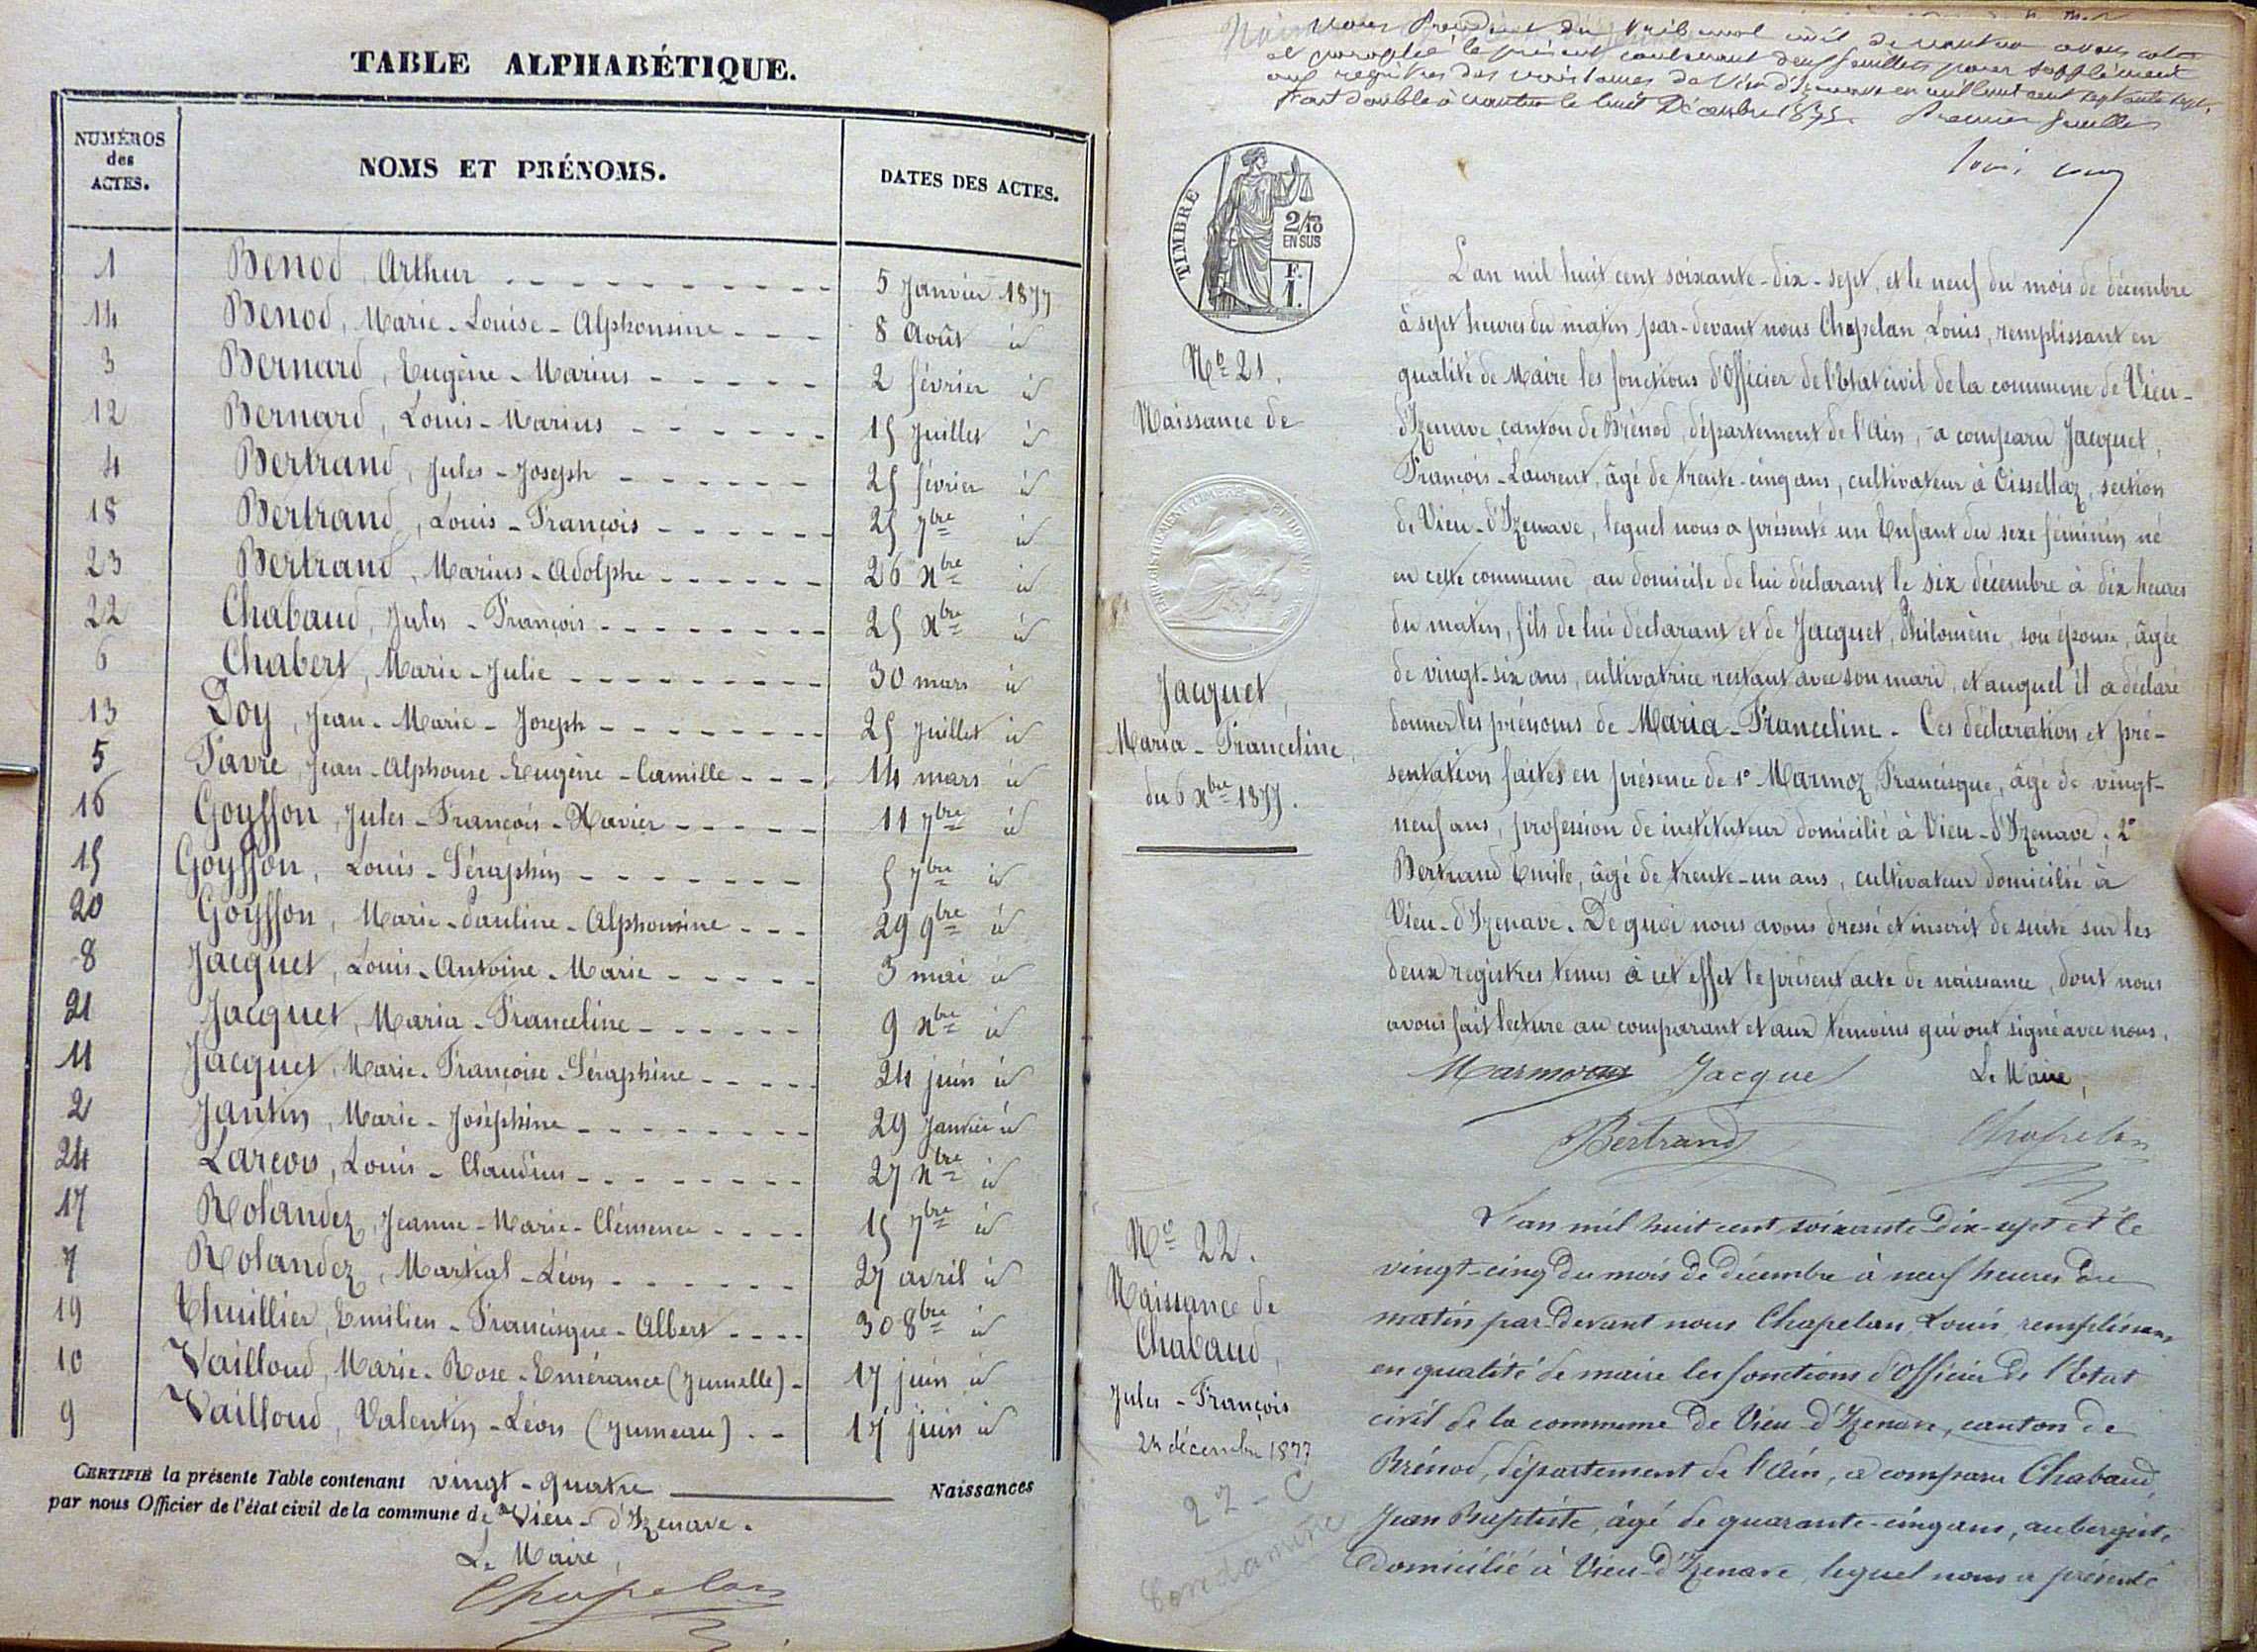 TABLE ALPHABÉTIQUE.
NUMÉROS des ACTES. NOMS ET PRÉNOMS. DATES DES ACTES.
1 Benod, Arthur 5 Janvier 1877
14 Benod, Marie-Louise-Alphonsine 8 Août id
3 Bernard, Eugène-Marius 2 février id
12 Bernard, Louis-Marius 15 Juillet id
4 Bertrand, Jules-Joseph 25 février id
18 Bertrand, Louis-François 25 7bre id
23 Bertrand, Marius-Adolphe 26 Xbre id
22 Chabaud, Jules-François 25 Xbre id
6 Chabert, Marie-Julie 30 mars id
13 Doy, Jean-Marie-Joseph 25 Juillet id
5 Favre, Jean-Alphonse-Eugène-Camille 14 mars id
16 Goyffon, Jules-François-Xavier 11 7bre id
15 Goyffon, Louis-Séraphin 5 7bre id
20 Goyffon, Marie-Pauline-Alphonsine 29 9bre id
8 Jacquet, Louis-Antoine-Marie 3 mai id
21 Jacquet, Maria-Franceline 9 Xbre id
11 Jacquet, Marie-Françoise-Séraphine 24 juin id
2 Jantin, Marie-Joséphine 29 Janvier id
24 Larçois, Louis-Claudius 27 Xbre id
17 Rolandez, Jeanne-Marie-Clémence 15 7bre id
7 Rolandez, Martial-Léon 27 avril id
19 Thuillier, Emilien-Francisque-Albert 30 8bre id
10 Vailloud, Marie-Rose-Emérance (jumelle) 17 juin id
9 Vailloud, Valentin-Léon (jumeau) 17 juin id
CERTIFIÉ la présente Table contenant vingt-quatre Naissances
par nous Officier de l'état civil de la commune de Vieu-d'Izenave.
Le Maire,
Chapelan
Nous Président du tribunal civil de nantua avons coté
et paraphé le présent contenant deux feuillets pour supplément
aux registres des naissances de Vieu d'Izenave en mil huit cent septante sept.
Fait double à nantua le huit Décembre 1877. Premier feuillet
TIMBRE
2/10
EN SUS
F.
1.
No 21.
Naissance de
Jacquet,
Maria-Franceline,
du 6 Xbre 1877.
L'an mil huit cent soixante-dix-sept, et le neuf du mois de décembre
à sept heures du matin par-devant nous Chapelan, Louis, remplissant en
qualité de Maire les fonctions d'Officier de l'Etat civil de la commune de Vieu-
d'Izenave, canton de Brénod, département de l'Ain, a comparu Jacquet,
François-Laurent, âgé de trente-cinq ans, cultivateur à Oissellaz, section
de Vieu-d'Izenave, lequel nous a présenté un Enfant du sexe féminin né
en cette commune au domicile de lui déclarant le six décembre à dix heures
du matin, fils de lui déclarant et de Jacquet, Philomène, son épouse, âgée
de vingt-six ans, cultivatrice restant avec son mari, et auquel il a déclaré
donner les prénoms de Maria-Franceline. Ces déclaration et pré-
sentation faites en présence de 1° Marmoz, Francisque, âgé de vingt-
neuf ans, profession de instituteur domicilié à Vieu-d'Izenave; 2°
Bertrand Emile, âgé de trente-un ans, cultivateur domicilié à
Vieu-d'Izenave. De quoi nous avons dressé et inscrit de suite sur les
deux registres tenus à cet effet le présent acte de naissance, dont nous
avons fait lecture au comparant et aux témoins qui ont signé avec nous.
Jacquet Le Maire,
Bertrand Chapelan
No 22.
Naissance de
Chabaud,
Jules-François
24 décembre 1877
L'an mil huit cent soixante Dix-sept et le
vingt-cinq du mois de décembre à neuf heures du
matin par-devant nous Chapelan, Louis, remplissant
en qualité de maire les fonctions d'Officier de l'Etat
civil de la commune de Vieu-d'Izenave, canton de
Brénod, département de l'Ain, a comparu Chabaud,
Jean Baptiste, âgé de quarante-cinq ans, aubergiste,
domicilié à Vieu-d'Izenave, lequel nous a présenté